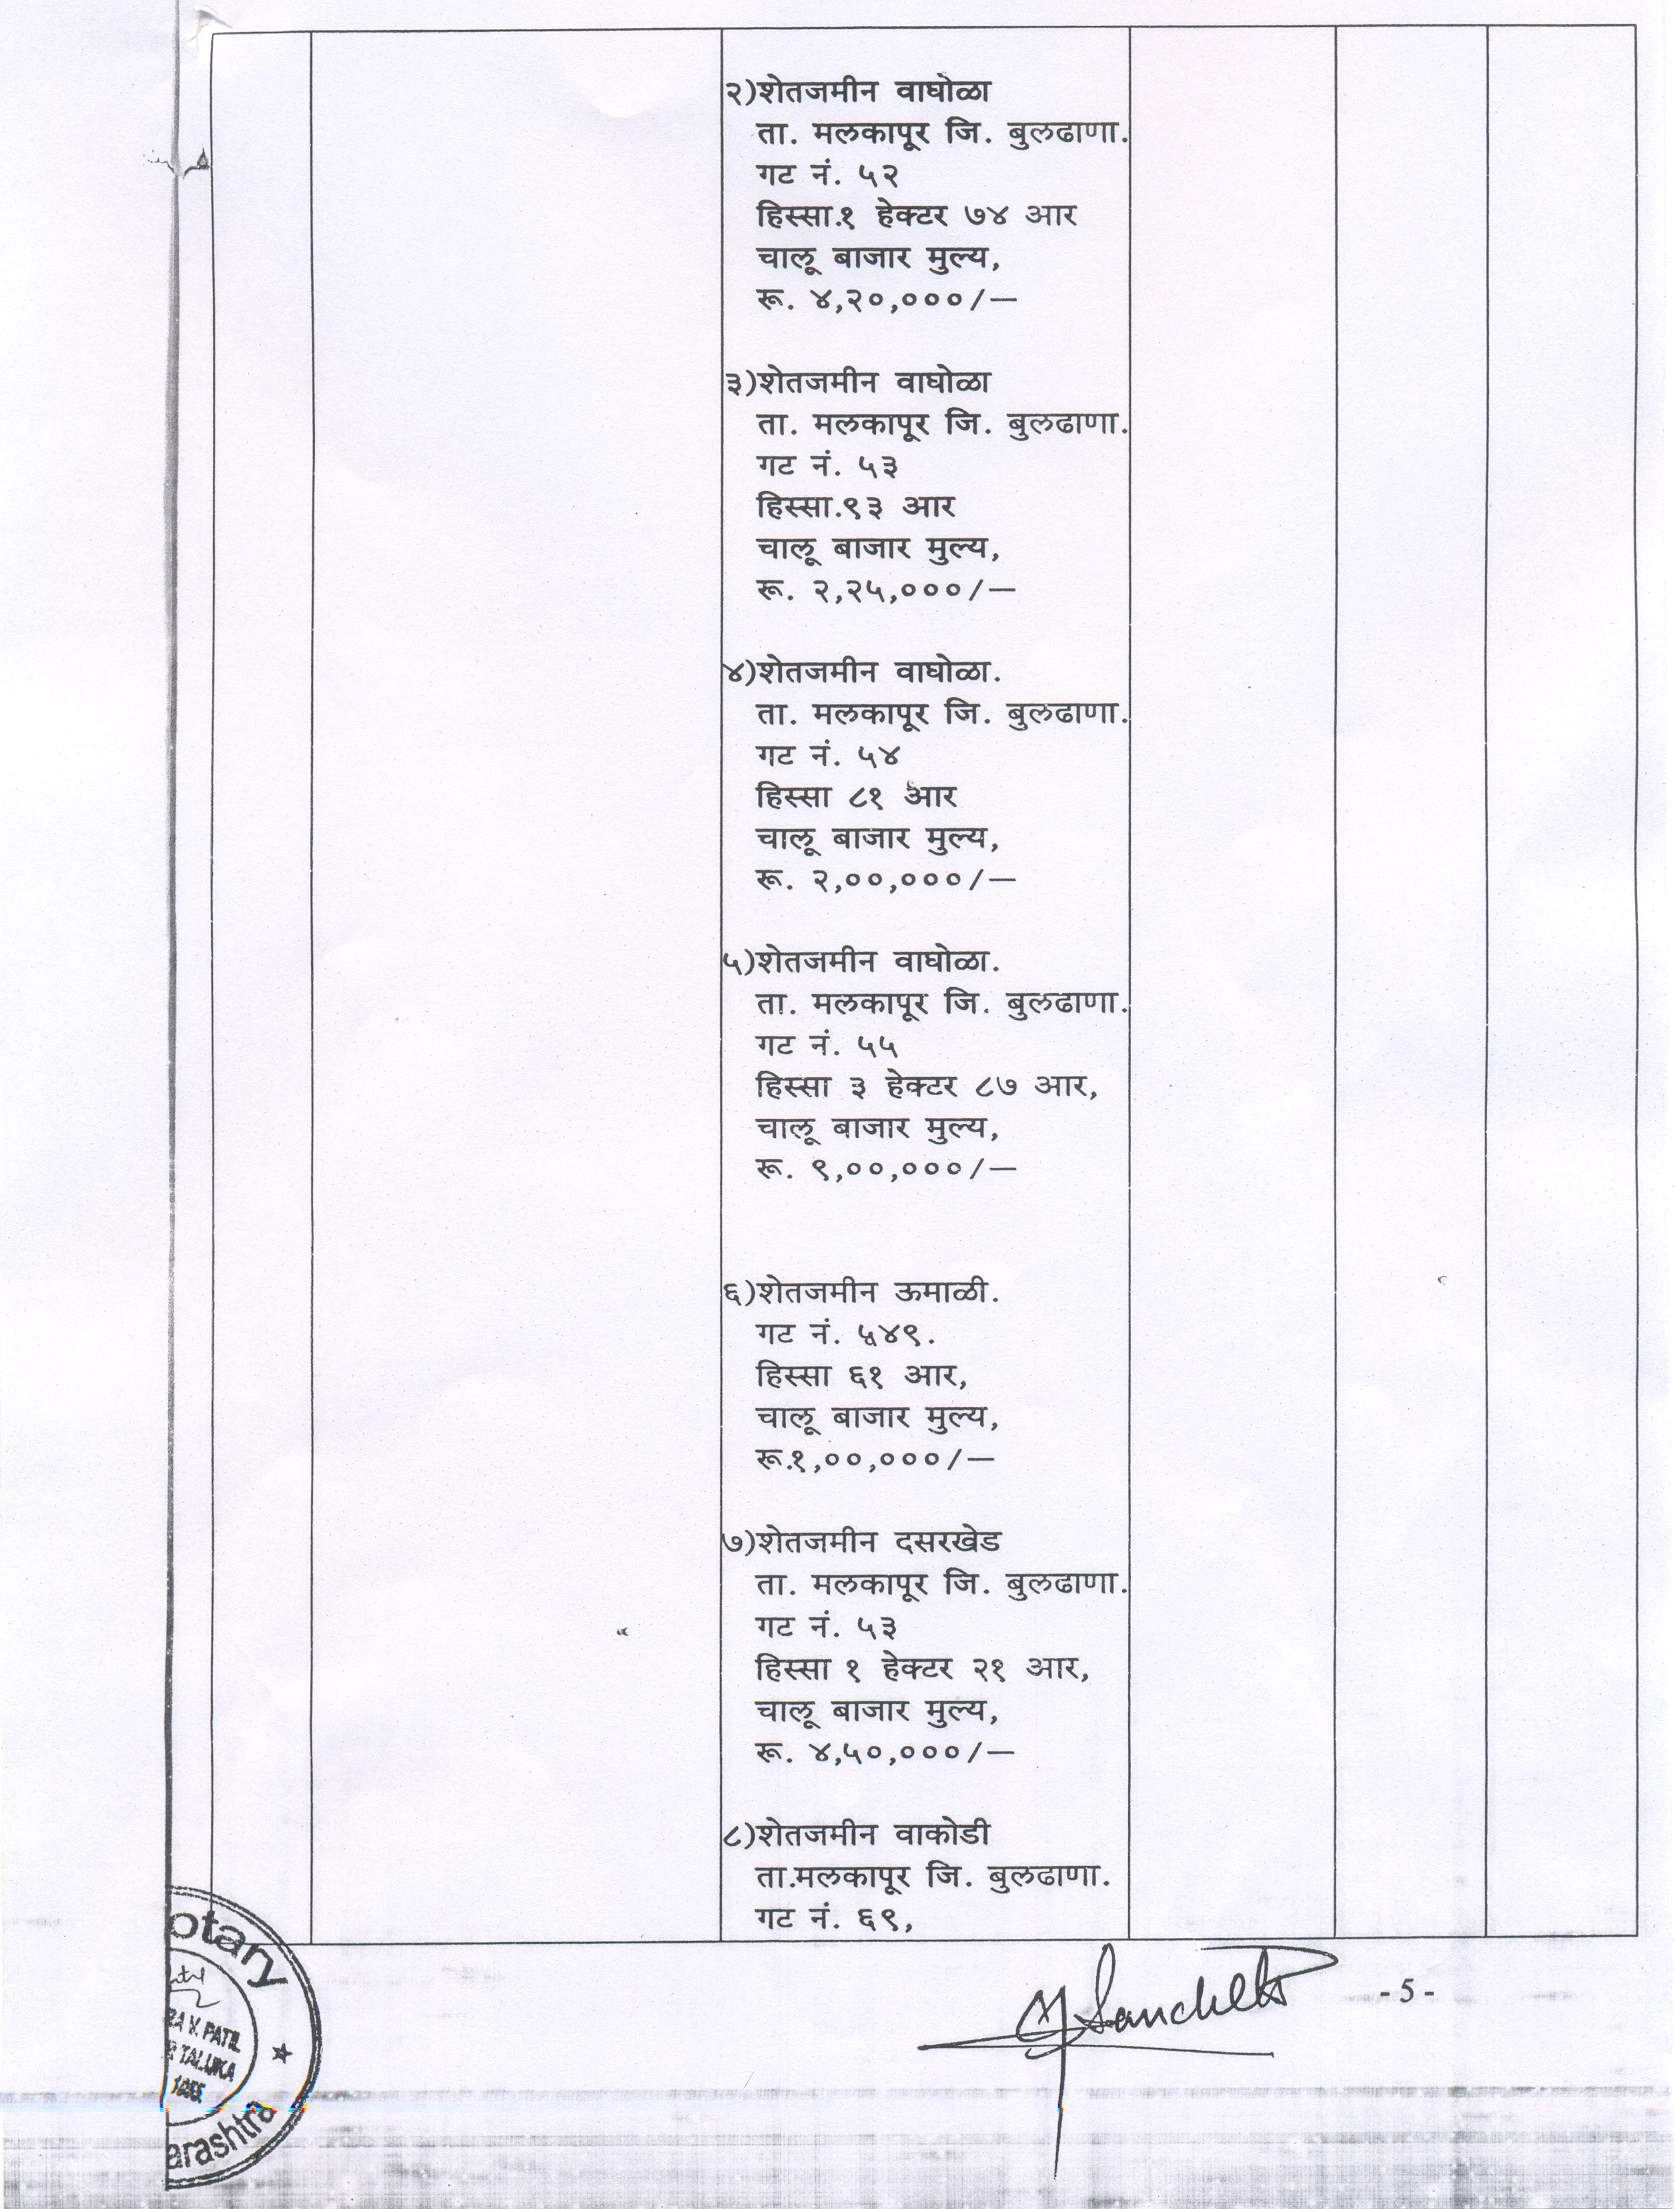 २)शेतजमीन वाघोळा
ता. मलकापूर जि. बुलढाणा.
गट नं. ५२
हिस्सा.१ हेक्टर ७४ आर
चालू बाजार मुल्य,
रू. ४,२०,०००/—
३)शेतजमीन वाघोळा
ता. मलकापूर जि. बुलढाणा.
गट नं. ५३
हिस्सा.९३ आर
चालू बाजार मुल्य,
रू. २,२५,०००/—
४)शेतजमीन वाघोळा.
ता. मलकापूर जि. बुलढाणा.
गट नं. ५४
हिस्सा ८१ आर
चालू बाजार मुल्य,
रू. २,००,०००/—
५)शेतजमीन वाघोळा.
ता. मलकापूर जि. बुलढाणा.
गट नं. ५५
हिस्सा ३ हेक्टर ८७ आर,
चालू बाजार मुल्य,
रू. ९,००,०००/—
६)शेतजमीन ऊमाळी.
गट नं. ५४९.
हिस्सा ६१ आर,
चालू बाजार मुल्य,
रू.१,००,०००/—
७)शेतजमीन दसरखेड
ता. मलकापूर जि. बुलढाणा.
गट नं. ५३
हिस्सा १ हेक्टर २१ आर,
चालू बाजार मुल्य,
रू. ४,५०,०००/—
८)शेतजमीन वाकोडी
ता.मलकापूर जि. बुलढाणा.
गट नं. ६९,
otary
RA V. PATIL
TALUKA
arashtra
- 5 -